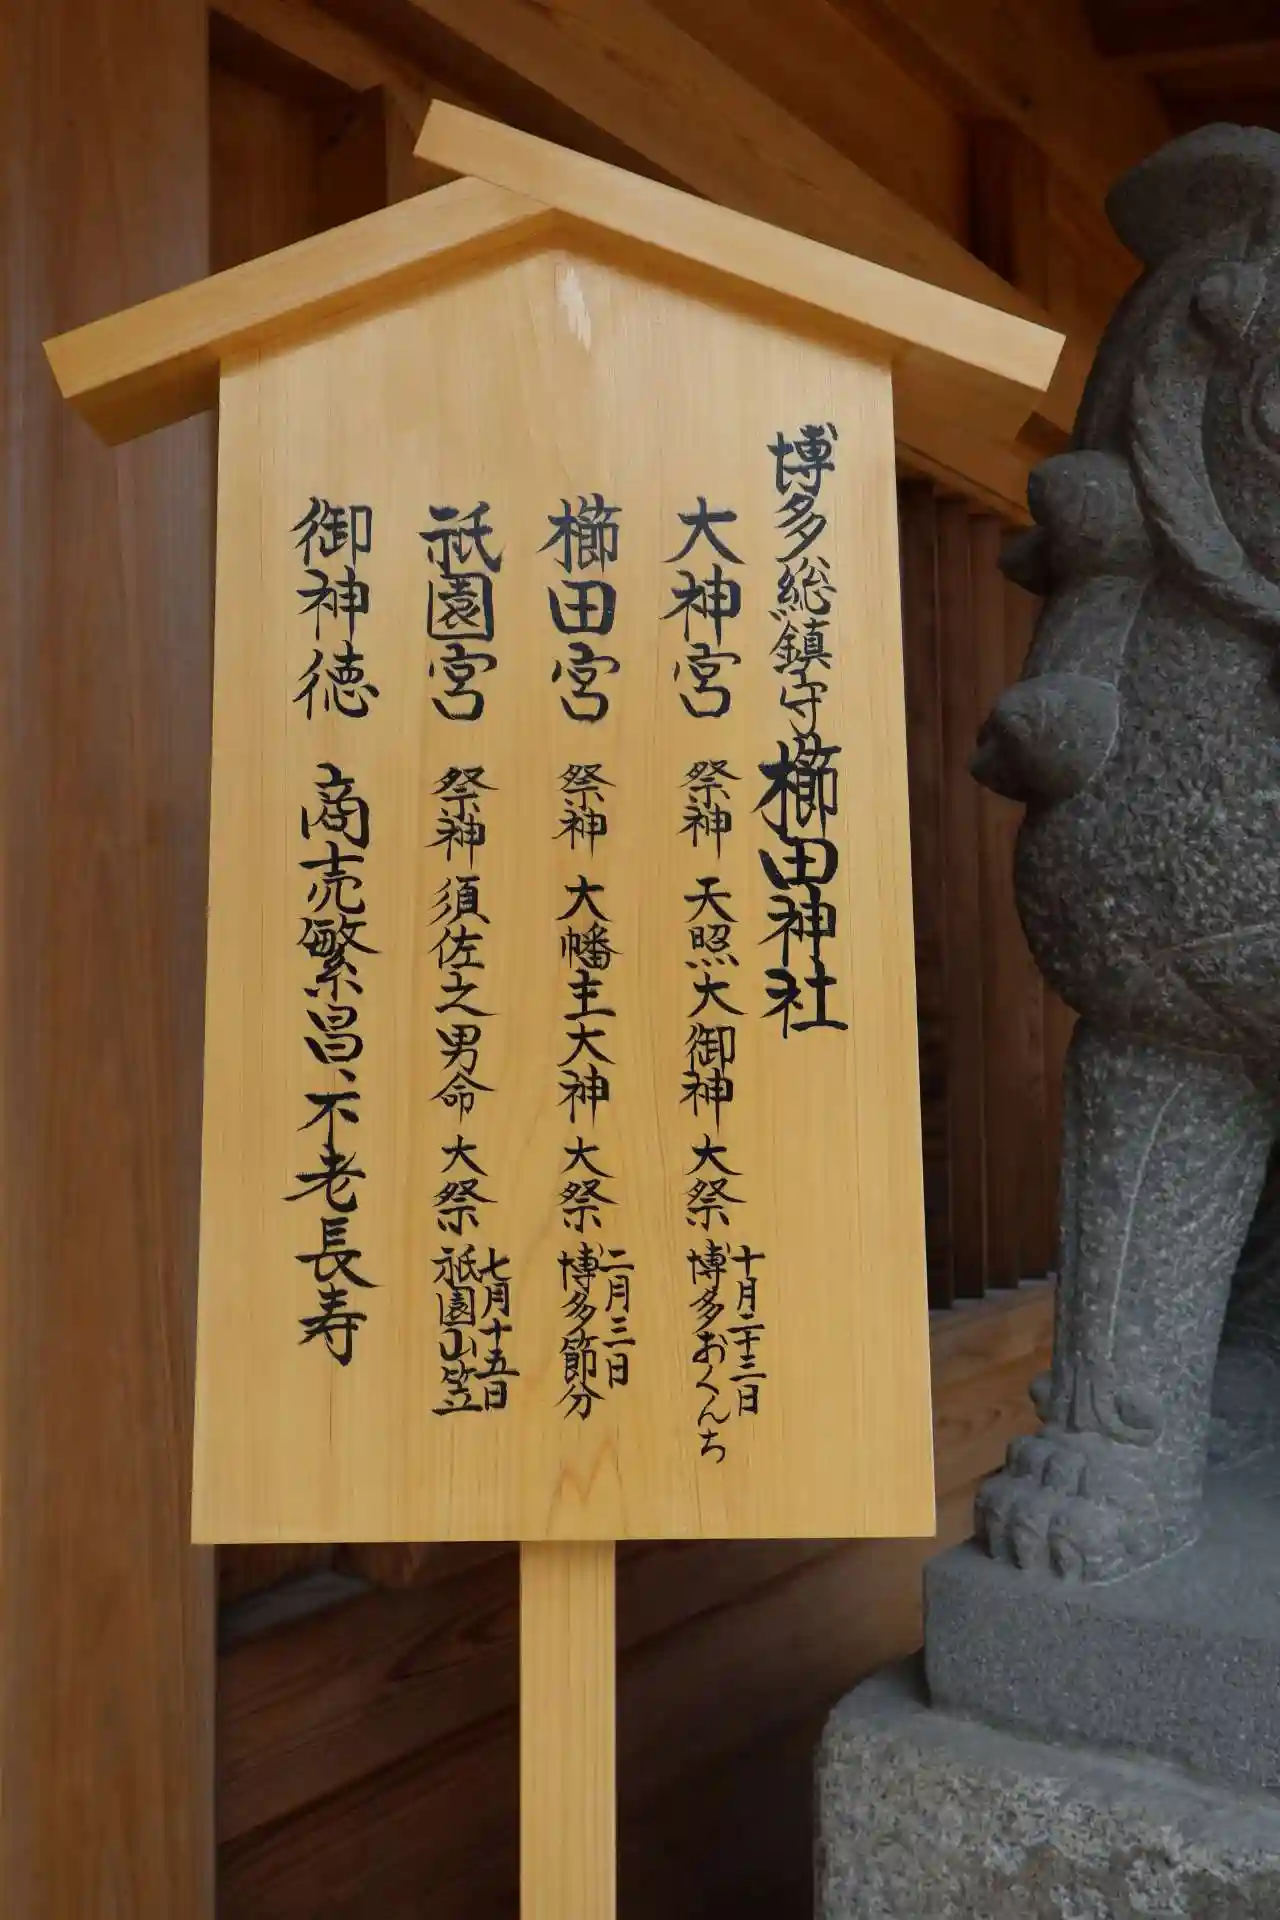 博多総鎮守櫛田神社
大神宮 祭神 天照大御神 大祭 十月二十三日 博多おくんち
櫛田宮 祭神 大幡主大神 大祭 二月三日 博多節分
祇園宮 祭神 須佐之男命 大祭 七月十五日 祇園山笠
御神徳 商売繁昌、不老長寿